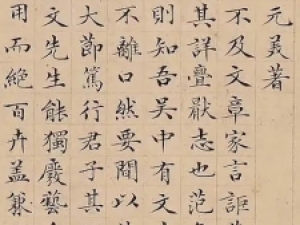 元美著
不及文章家言詎
其詳疊猒志也范
則知吾吳中有文
不離口然要間以
大節篤行君子其
文先生能獨廢藝
用而絕百卉盖兼